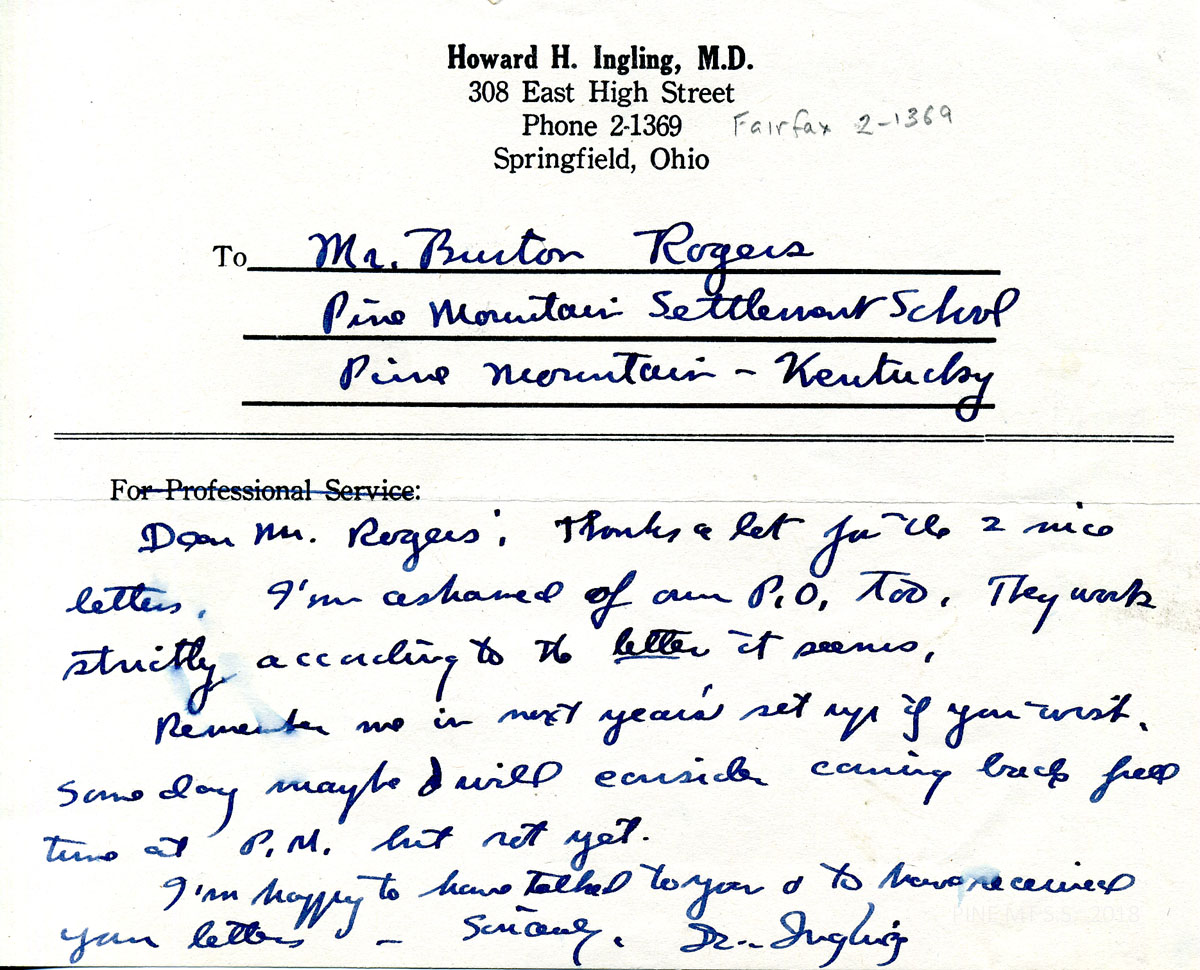 Howard H. Ingling, M.D.
308 East High Street
Phone 2-1369 Fairfax 2-1369
Springfield, Ohio
To Mr. Burton Rogers
Pine Mountain Settlement School
Pine Mountain - Kentucky
For Professional Service:
Dear Mr. Rogers: Thanks a lot for the 2 nice
letters. I'm ashamed of our P.O. too. They work
strictly according to the letter it seems.
Remember me in next year's set up if you wish.
Some day maybe I will consider coming back full
time at P.M. but not yet.
I'm happy to have talked to you & to have received
your letters - Sincerely, Dr. Ingling
PINE MT S.S. 2018